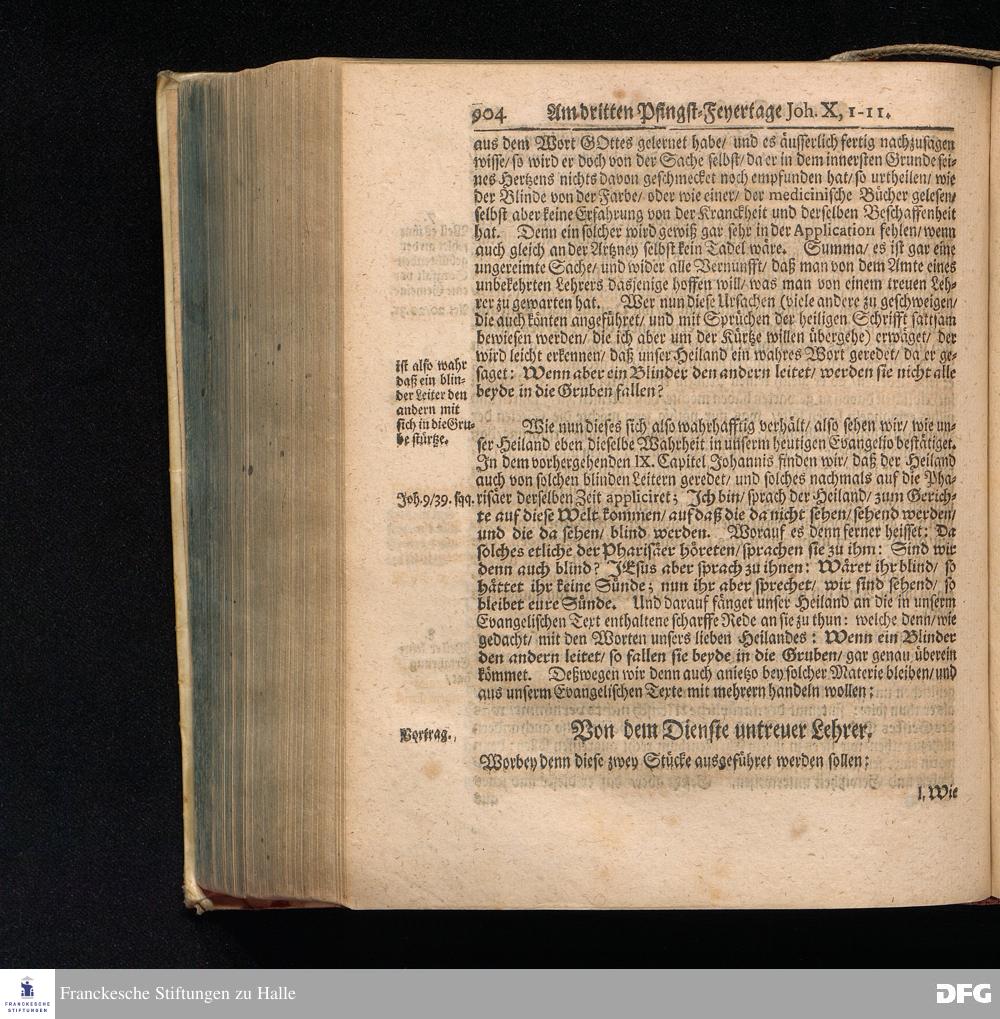 904 Am dritten Pfingst-Feyertage Joh. X, 1-11.
aus dem Wort GOttes gelernet habe/ und es äusserlich fertig nachzusagen
wisse/ so wird er doch von der Sache selbst/ da er in dem innersten Grunde sei-
nes Hertzens nichts davon geschmecket noch empfunden hat/ so urtheilen/ wie
der Blinde von der Farbe/ oder wie einer/ der medicinische Bücher gelesen/
selbst aber keine Erfahrung von der Kranckheit und derselben Beschaffenheit
hat. Denn ein solcher wird gewiß gar sehr in der Application fehlen/ wenn
auch gleich an der Artzney selbst kein Tadel wäre. Summa/ es ist gar eine
ungereimte Sache/ und wider alle Vernunfft/ daß man von dem Amte eines
unbekehrten Lehrers dasjenige hoffen will/ was man von einem treuen Leh-
rer zu gewarten hat. Wer nun diese Ursachen (viele andere zu geschweigen/
die auch könten angeführet/ und mit Sprüchen der heiligen Schrifft sattsam
bewiesen werden/ die ich aber um der Kürtze willen übergehe) erwäget/ der
wird leicht erkennen/ daß unser Heiland ein wahres Wort geredet/ da er ge-
saget: Wenn aber ein Blinder den andern leitet/ werden sie nicht alle
beyde in die Gruben fallen?
ist also wahr
daß ein blin-
der Leiter den
andern mit
sich in die Gru-
be stürtze.
Wie nun dieses sich also wahrhafftig verhält/ also sehen wir/ wie un-
ser Heiland eben dieselbe Wahrheit in unserm heutigen Evangelio bestätiget.
In dem vorhergehenden IX. Capitel Johannis finden wir/ daß der Heiland
auch von solchen blinden Leitern geredet/ und solches nachmals auf die Pha-
Joh. 9/39. sqq.
risäer derselben Zeit appliciret; Ich bin/ sprach der Heiland/ zum Gerich-
te auf diese Welt kommen/ auf daß die da nicht sehen/ sehend werden/
und die da sehen/ blind werden. Worauf es denn ferner heisset: Da
solches etliche der Pharisäer höreten/ sprachen sie zu ihm: Sind wir
denn auch blind? JEsus aber sprach zu ihnen: Wäret ihr blind/ so
hättet ihr keine Sünde; nun ihr aber sprechet/ wir sind sehend/ so
bleibet eure Sünde. Und darauf fänget unser Heiland an die in unserm
Evangelischen Text enthaltene scharffe Rede an sie zu thun: welche denn/ wie
gedacht/ mit den Worten unsers lieben Heilandes: Wenn ein Blinder
den andern leitet/ so fallen sie beyde in die Gruben/ gar genau überein
kömmet. Deßwegen wir denn auch anietzo bey solcher Materie bleiben/ und
aus unserm Evangelischen Texte mit mehrern handeln wollen;
Vortrag.
Von dem Dienste untreuer Lehrer.
Worbey denn diese zwey Stücke ausgeführet werden sollen:
I. Wie
FRANCKESCHE
STIFTUNGEN
Franckesche Stiftungen zu Halle
DFG